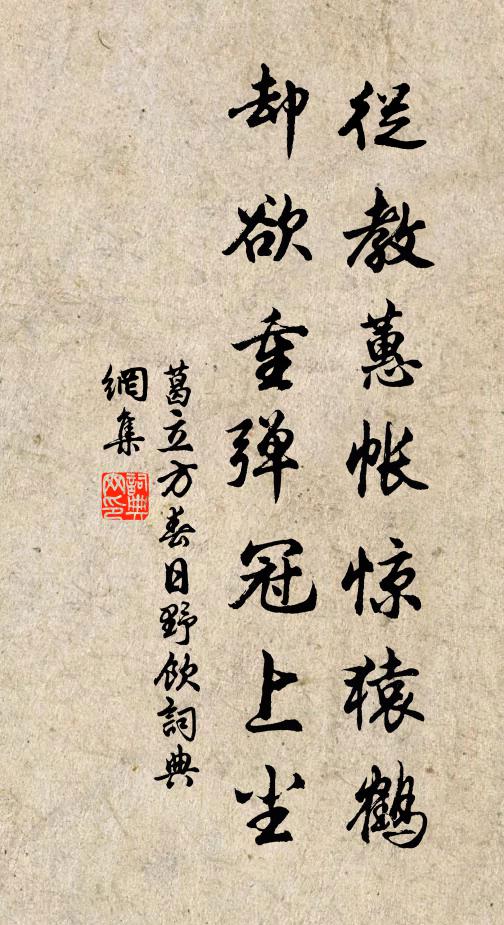 從教蕙帳惊猿鶴
却欲重弹冠上尘
葛立方春日野飲詞典
網集
詞典
网印